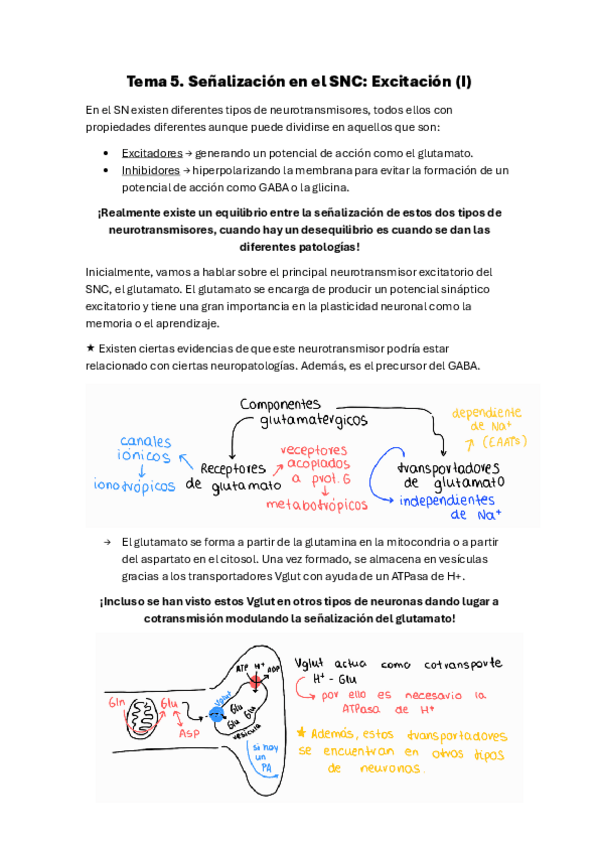 Tema 5. Señalización en el SNC: Excitación (I)
En el SN existen diferentes tipos de neurotransmisores, todos ellos con
propiedades diferentes aunque puede dividirse en aquellos que son:
• Excitadores → generando un potencial de acción como el glutamato.
• Inhibidores → hiperpolarizando la membrana para evitar la formación de un
potencial de acción como GABA o la glicina.
¡Realmente existe un equilibrio entre la señalización de estos dos tipos de
neurotransmisores, cuando hay un desequilibrio es cuando se dan las
diferentes patologías!
Inicialmente, vamos a hablar sobre el principal neurotransmisor excitatorio del
SNC, el glutamato. El glutamato se encarga de producir un potencial sináptico
excitatorio y tiene una gran importancia en la plasticidad neuronal como la
memoria o el aprendizaje.
★ Existen ciertas evidencias de que este neurotransmisor podría estar
relacionado con ciertas neuropatologías. Además, es el precursor del GABA.
Componentes
glutamatérgicos
canales
iónicos
↓
ionotrópicos
Receptores
de glutamato
receptores
acoplados
a prot. G
→ metabotrópicos
dependiente
de Na+
(EAATs)
transportadores
de glutamato
independientes
de Na+
→ El glutamato se forma a partir de la glutamina en la mitocondria o a partir
del aspartato en el citosol. Una vez formado, se almacena en vesículas
gracias a los transportadores Vglut con ayuda de un ATPasa de H+.
¡Incluso se han visto estos Vglut en otros tipos de neuronas dando lugar a
cotransmisión modulando la señalización del glutamato!
Gln
Glu
ASP
Vglut
ATP H+ ADP
Glu
Glu
Glu
vesícula
si hay
un
PA
Vglut actua como cotransporte
H+ - Glu
→ por ello es necesario la
ATPasa de H+
★ Además, estos transportadores
se encuentran en otros tipos
de neuronas.